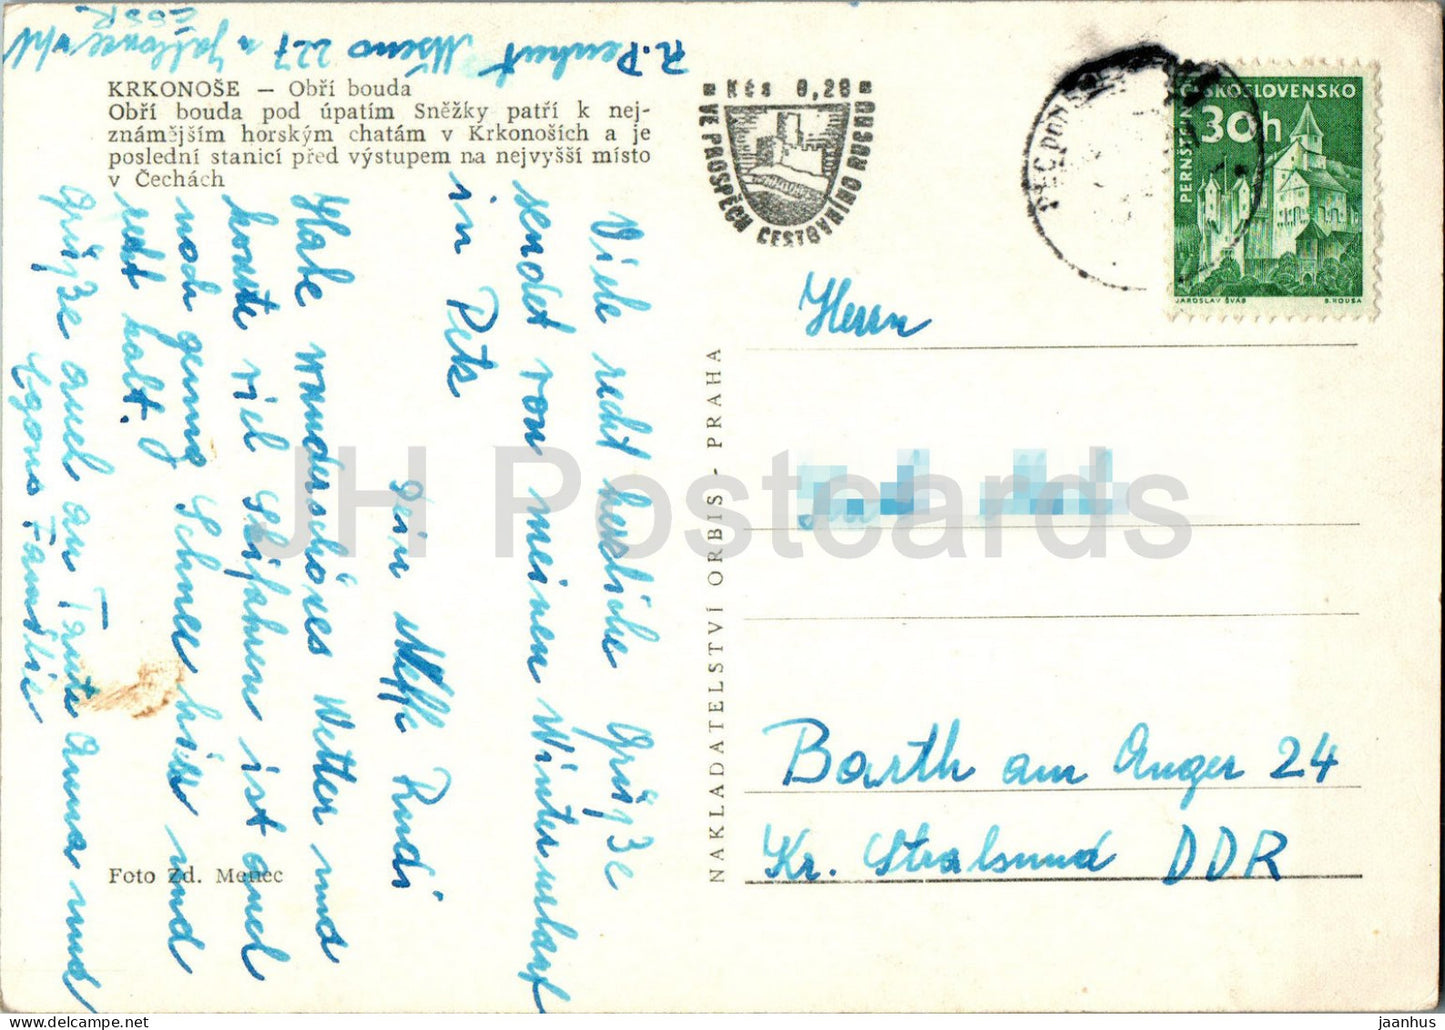 R. Penkert Mšeno 227 u Jablonce n/N
ČSSR
KRKONOŠE — Obří bouda
Obří bouda pod úpatím Sněžky patří k nej-
známějším horským chatám v Krkonoších a je
poslední stanicí před výstupem na nejvyšší místo
v Čechách
Viele recht herzliche Grüße
sendet von meinen Winterurlaub
in Pets
Dein Neffe Rudi
Habe wunderschönes Wetter und
konnte viel Skifahren ist auch
noch genug Schnee hier und
recht kalt.
Grüße auch an Tante Anna und
Egons Familie
Foto Zd. Menec
NAKLADATELSTVÍ ORBIS - PRAHA
Kčs 0,20
VE PROSPĚCH CESTOVNÍHO RUCHU
PEC POD
ČESKOSLOVENSKO
30h
PERNŠTEJN
JAROSLAV ŠVÁB
B. HOUSA
Herrn
Barth am Anger 24
Kr. Stralsund DDR
JH Postcards
jaanhus